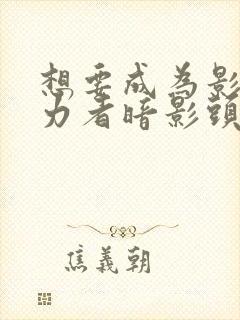 想要成為影
力者暗影頭
焦義朝